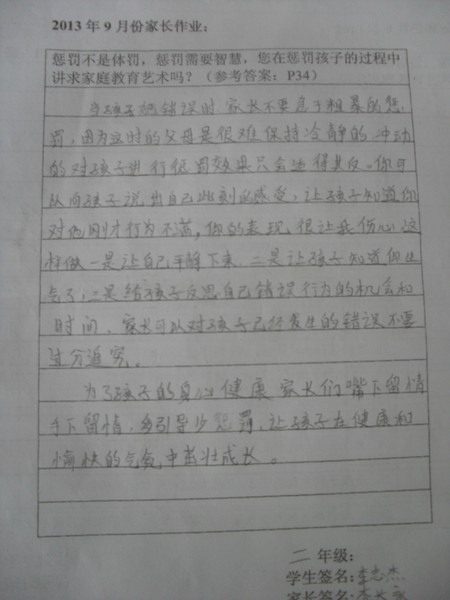 2013 年 9 月份家长作业：
惩罚不是体罚，惩罚需要智慧，您在惩罚孩子的过程中
讲求家庭教育艺术吗？（参考答案：P34）
当孩子犯错误时 家长不要急于粗暴的惩
罚，因为这时的父母是很难保持冷静的 冲动
的对孩子进行惩罚效果只会适得其反。你可
以向孩子说出自己此刻的感受，让孩子知道你
对他刚才行为不满，你的表现 很让我伤心 这
样做一是让自己平静下来 二是让孩子知道你生
气了，三是给孩子反思自己错误行为的机会和
时间、家长可以对孩子已经发生的错误不要
过分追究。
为了孩子的身心健康 家长们嘴下留情
手下留情，多引导少惩罚，让孩子在健康和
愉快的气氛中茁壮成长。
二 年级：
学生签名：李志杰
家长签名：李